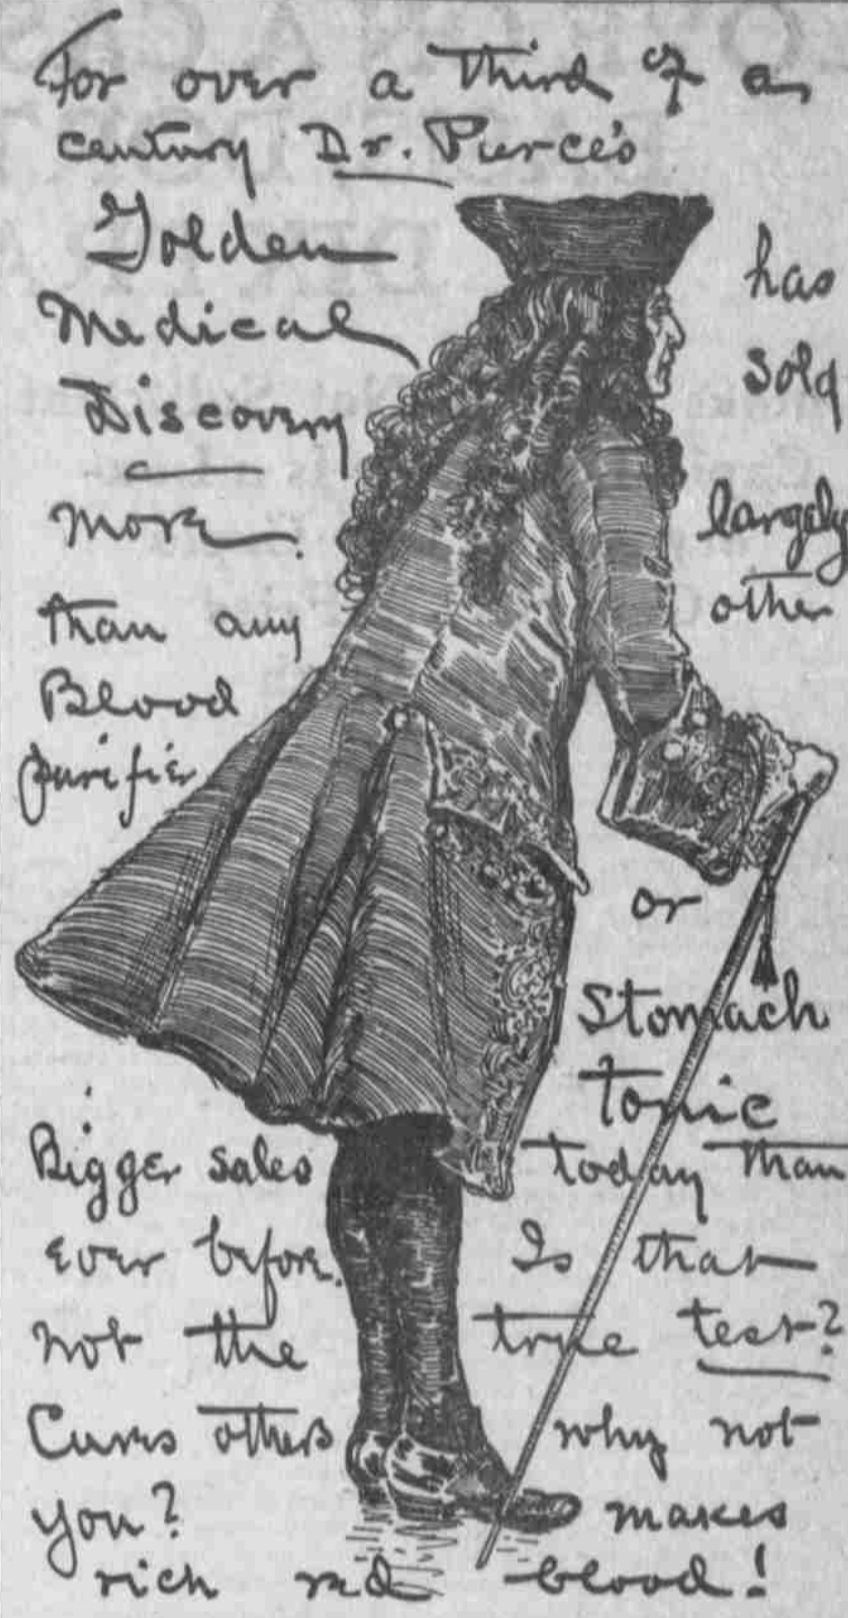 For over a third of a
century Dr. Pierce's
Golden has
Medical sold
Discovery
more largely
than any other
Blood
purifier or
Stomach
tonic
Bigger sales today than
ever before. Is that
not the true test?
Cures others why not
you? makes
rich red blood!